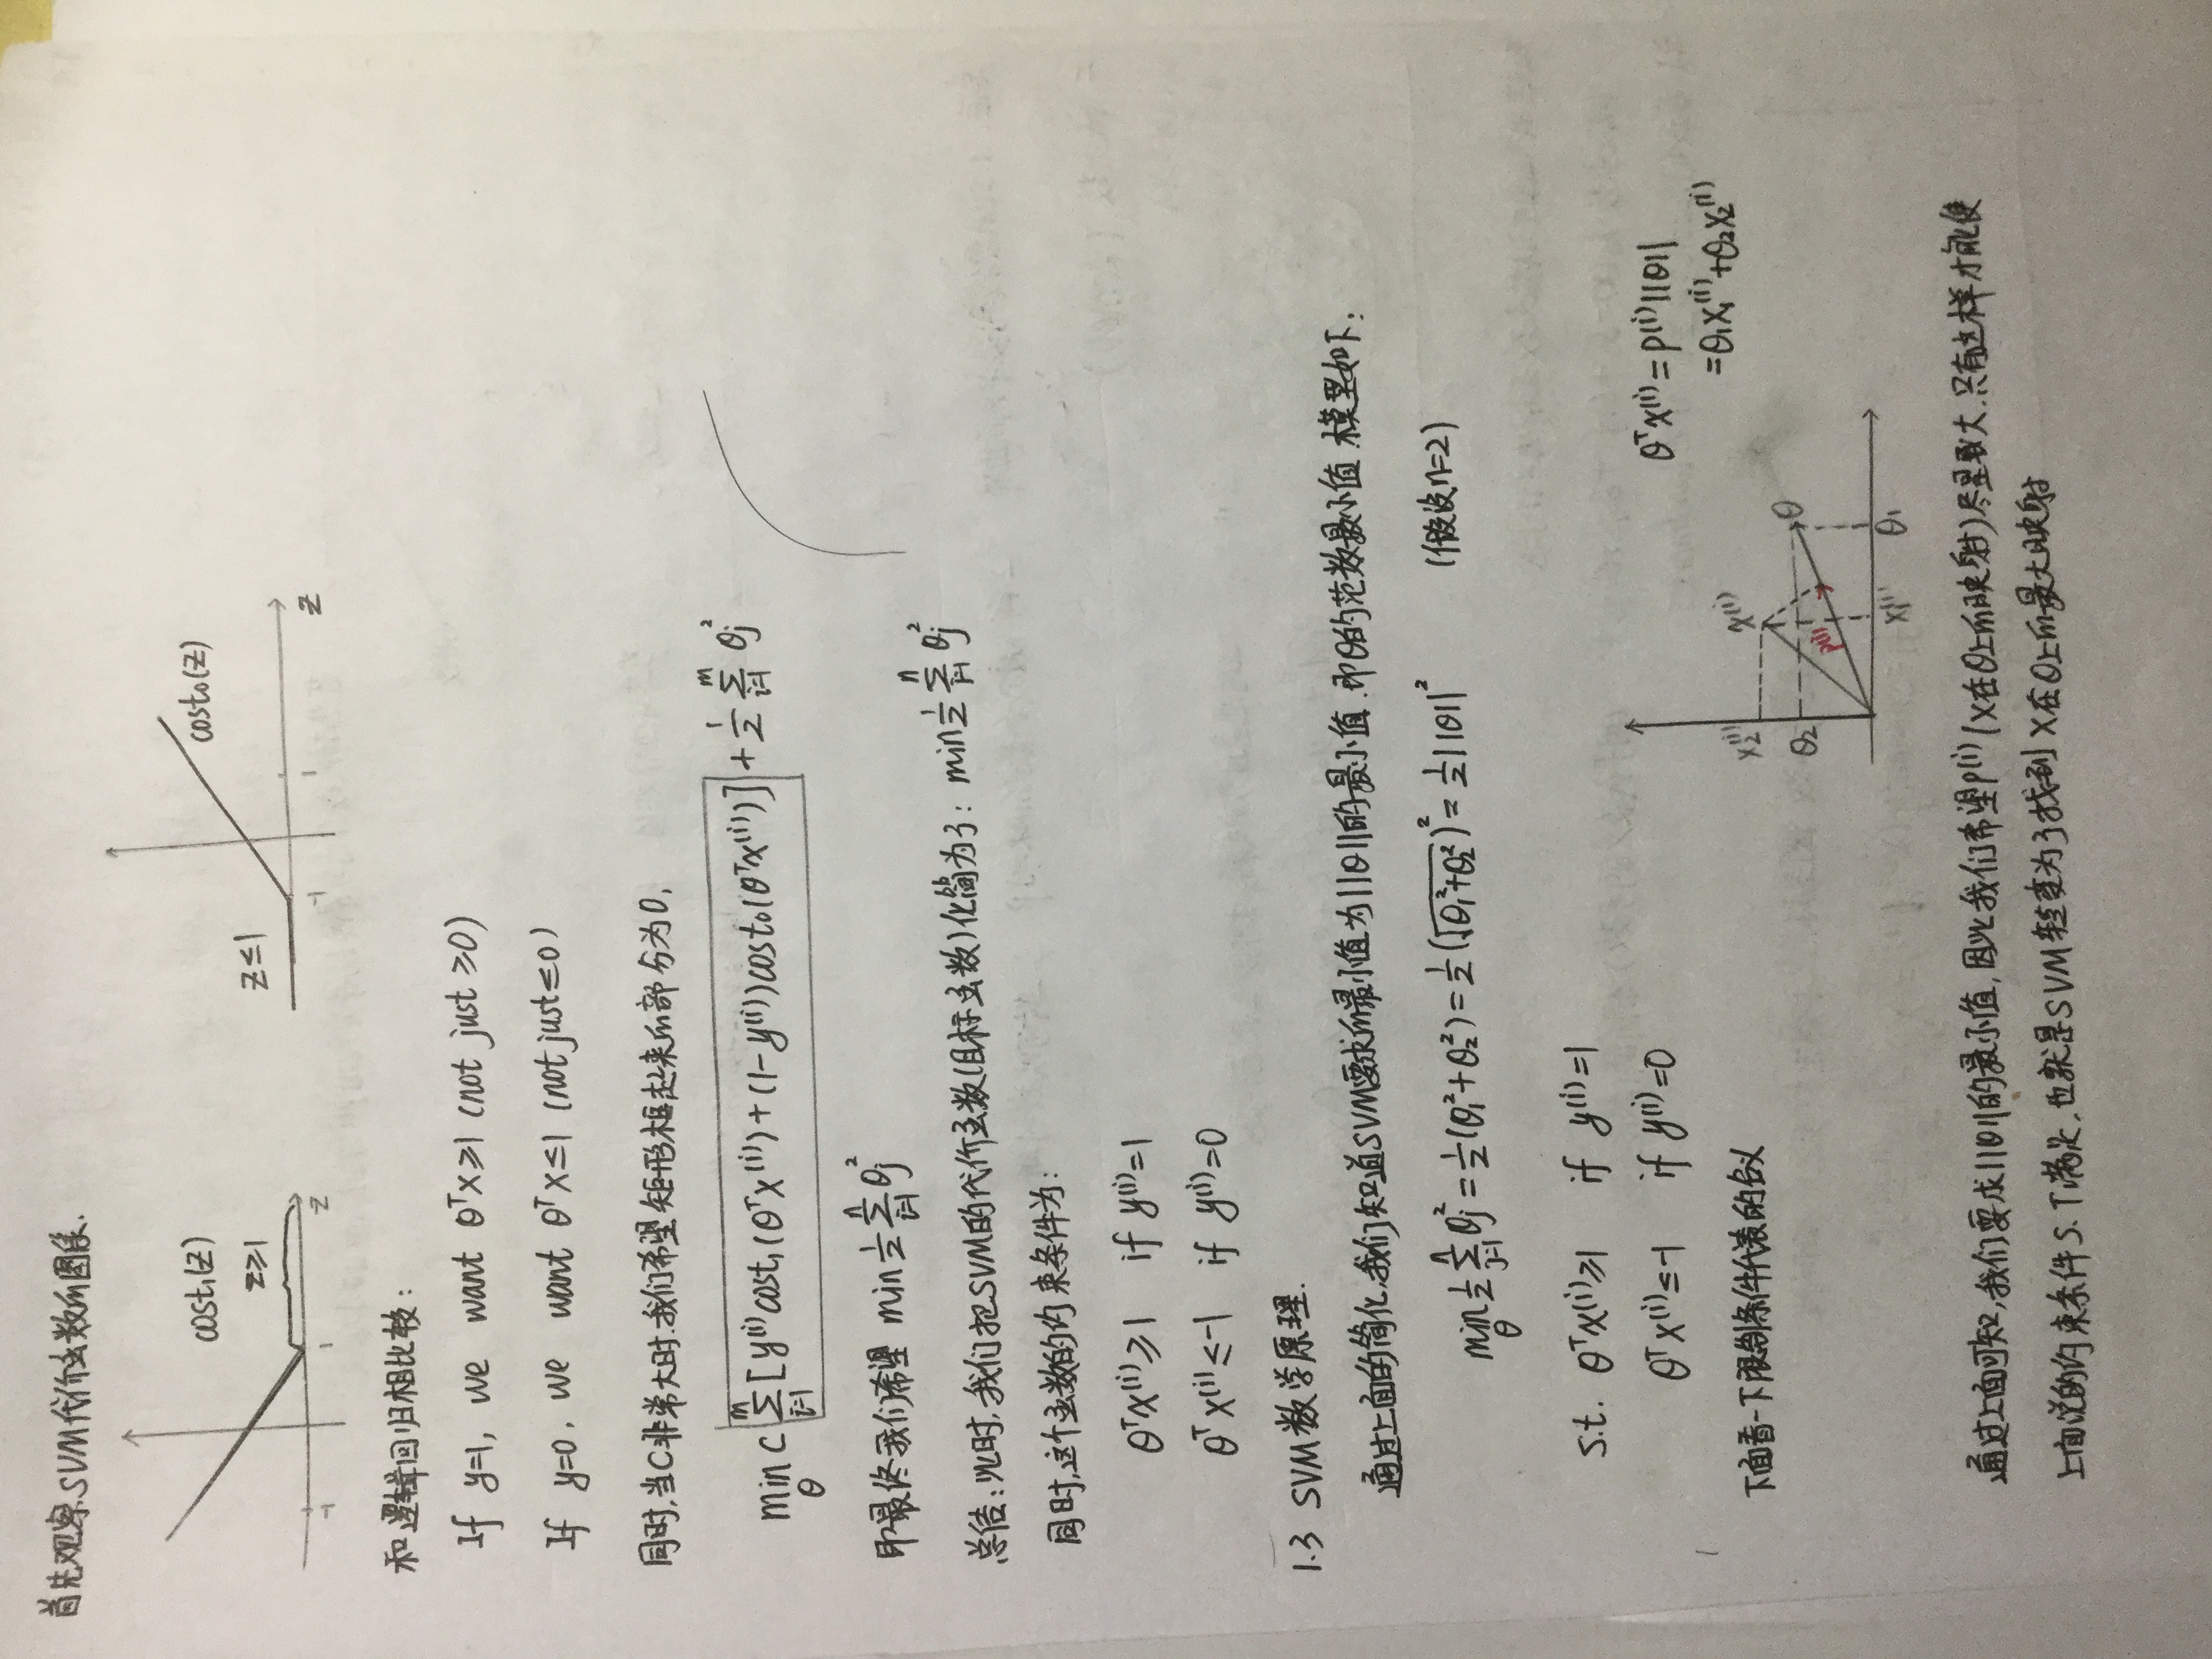 首先观察SVM代价函数的图像.
cost₁(z)
z≥1
-1
1
z
z≤1
cost₀(z)
-1
1
z
和逻辑回归相比较:
If y=1, we want θᵀx≥1 (not just ≥0)
If y=0, we want θᵀx≤1 (not just≤0)
同时,当C非常大时.我们希望矩形框起来的部分为0,
min_θ C Σ_{i=1}^{m} [y⁽ⁱ⁾cost₁(θᵀx⁽ⁱ⁾)+(1-y⁽ⁱ⁾)cost₀(θᵀx⁽ⁱ⁾)] + ½ Σ_{i=1}^{m} θⱼ²
即最终我们希望 min ½ Σ_{i=1}^{n} θⱼ²
总结:此时,我们把SVM的代价函数(目标函数)化简为了: min ½ Σ_{i=1}^{n} θⱼ²
同时,这个函数的约束条件为:
θᵀx⁽ⁱ⁾≥1 if y⁽ⁱ⁾=1
θᵀx⁽ⁱ⁾≤-1 if y⁽ⁱ⁾=0
1.3 SVM数学原理.
通过上面的简化,我们知道SVM要求的最小值为||θ||的最小值.即θ的范数最小值.模型如下:
min_θ ½ Σ_{j=1}^{n} θⱼ² = ½(θ₁²+θ₂²) = ½(√(θ₁²+θ₂²))² = ½||θ||² (假设n=2)
s.t. θᵀx⁽ⁱ⁾≥1 if y⁽ⁱ⁾=1
θᵀx⁽ⁱ⁾≤-1 if y⁽ⁱ⁾=0
下面看一下限制条件代表的含义
x₂⁽ⁱ⁾
θ₂
x⁽ⁱ⁾
θ
p⁽ⁱ⁾
x₁⁽ⁱ⁾
θ₁
θᵀx⁽ⁱ⁾=p⁽ⁱ⁾||θ||
=θ₁x₁⁽ⁱ⁾+θ₂x₂⁽ⁱ⁾
通过上面可知,我们要求||θ||的最小值,因此我们希望p⁽ⁱ⁾(x在θ上的映射)尽量取大.只有这样才能使
上面说的约束条件S.T满足.也就是SVM转变为了找到x在θ上的最大映射